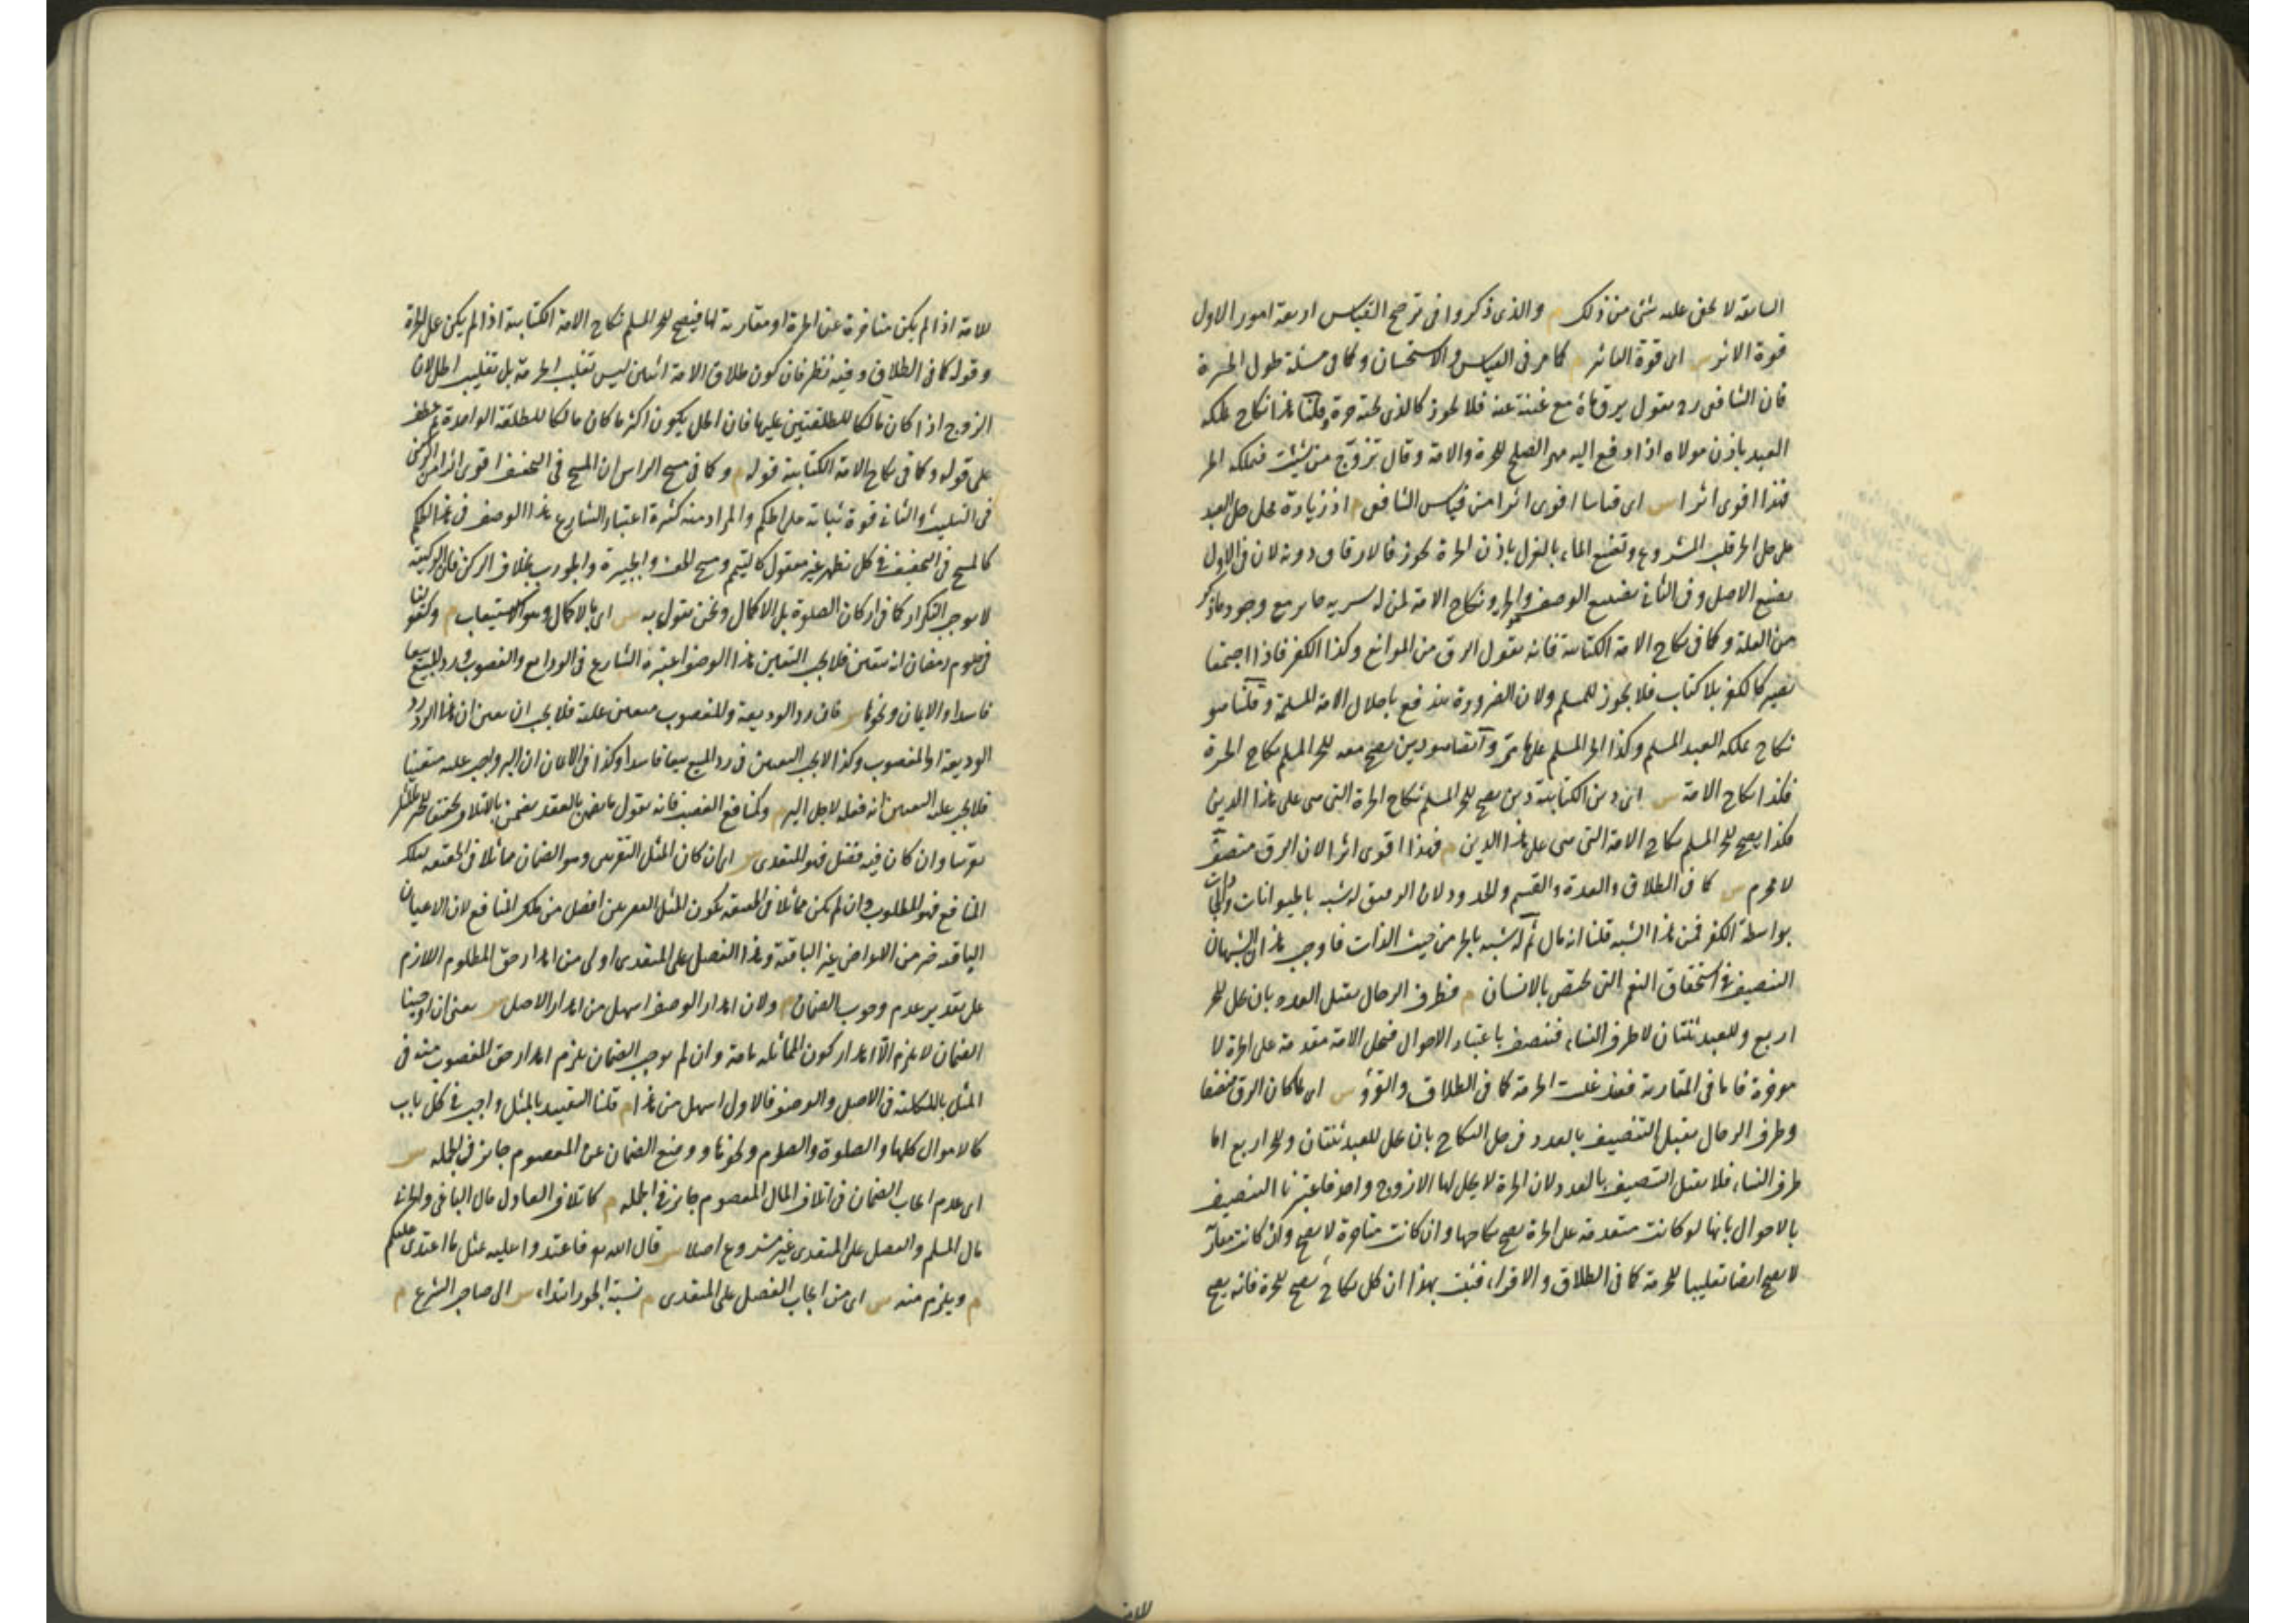 السابقة لا يخفى عليه شئ من ذلك م والذى ذكروا فى ترجيح القياس اربعة امور الاول
قوة الاثر س اى قوة التاثير م كما مر فى القياس والاستحسان وكما فى مسئلة طول الحرة
فان الشافعى رح يقول يرق ماءه مع غنية عنه فلا يجوز كالذى تحته حرة وقلنا هذا نكاح يملكه
العبد باذن مولاه اذا دفع اليه مهرا يصلح للحرة والامة وقال تزوج من شئت فيملكه الحر
فهذا اقوى اثرا س اى قياسا اقوى اثرا من قياس الشافعى م اذ زيادة محل حل العبد
على حل الحر قلب المشروع وتضييع الماء بالعزل باذن الحرة يجوز فالارقاق دونه لان فى الاول
تضييع الاصل وفى الثانى تضييع الوصف ونكاح الامة لمن له سرية جائز مع وجود ما ذكر
من العلة وكما فى نكاح الامة الكتابية فانه يقول الرق من الموانع وكذا الكفر فاذا اجتمعا
يصير كالكفر بلا كتاب فلا يجوز للمسلم ولان الضرورة تندفع باحلال الامة المسلمة وقلنا هو
نكاح يملكه العبد المسلم وكذا الحر المسلم على ما مر وايضا هو دين يصح معه للحر المسلم نكاح الحرة
فكذا نكاح الامة س اى دين الكتابية دين يصح للحر المسلم نكاح الحرة التى هى على هذا الدين
فكذا يصح للحر المسلم نكاح الامة التى هى على هذا الدين م فهذا اقوى اثرا لان الرق منصف
لا محرم س كما فى الطلاق والعدة والقسم والحدود لان الرقيق له شبه بالحيوانات والجمادات
بواسطة الكفر فمن هذا الشبه قلنا انه مال ثم له شبه بالحر من حيث الذات فاوجب هذان الشبهان
التنصيف فى استحقاق النعم التى تختص بالانسان م فطرف الرجال يقبل العدد بان يحل للحر
اربع وللعبد ثنتان لا طرف النساء فننصف باعتبار الاحوال فتحل الامة مقدمة على الحرة لا
مؤخرة فاما فى المقارنة فقد غلبت الحرمة كما فى الطلاق والقرؤ س اى لما كان الرق منصفا
وطرف الرجال يقبل التنصيف بالعدد فى حل النكاح بان يحل للعبد ثنتان وللحر اربع اما
طرف النساء فلا يقبل التنصيف بالعدد لان الحرة لا يحل لها الا زوج واحد فاعتبرنا التنصيف
بالاحوال بانها لو كانت متقدمة على الحرة يصح نكاحها وان كانت متاخرة لا يصح وان كانت مقارنة
لا يصح ايضا تغليبا للحرمة كما فى الطلاق والاقراء فثبت بهذا ان كل نكاح يصح للحرة فانه يصح
للامة اذا لم يكن متاخرة عن الحرة او مقارنة لها فيصح للحر المسلم نكاح الامة الكتابية اذا لم يكن على الحرة
وقوله كما فى الطلاق وفيه نظر فان كون طلاق الامة اثنين ليس تغليب الحرمة بل تغليب الحل لان
الزوج اذا كان مالكا للطلقتين عليها فان الحل يكون اكثر مما كان مالكا للطلقة الواحدة ثم عطف
على قوله وكما فى نكاح الامة الكتابية قوله م وكما فى مسح الراس ان المسح فى التخفيف اقوى اثرا من الركن
فى التثليث والثانى قوة ثباته على الحكم والمراد منه كثرة اعتبار الشارع هذا الوصف فى هذا الحكم
كالمسح فى التخفيف فى كل تطهير غير معقول كالتيمم ومسح الخف والجبيرة والجورب بخلاف الركن فان الركنية
لا توجب التكرار كما فى اركان الصلوة بل الاكمال ونحن نقول به س اى بالاكمال وهو الاستيعاب م وكقولنا
فى صوم رمضان انه متعين فلا يجب التعيين هذا الوصف اعتبره الشارع فى الودايع والغصوب ورد المبيع بيعا
فاسدا والايمان ونحوها س فان رد الوديعة والمغصوب متعين عليه فلا يجب ان يعين ان هذا الرد رد
الوديعة او المغصوب وكذا لا يجب التعيين فى رد المبيع بيعا فاسدا وكذا فى الايمان ان البر واجب عليه متعينا
فلا يجب عليه التعيين انه فعله لاجل البر م وكمنافع الغصب فانه يقول ما يضمن بالعقد يضمن بالاتلاف تحقيقا للجبر بالمثل
تقريبا وان كان فيه فضل فهو للمتعدى س اى ان كان المثل التقريبى وهو الضمان مماثلا فى الحقيقة لتلك
المنافع فهو المطلوب وان لم يكن مماثلا فى الحقيقة يكون المثل التقريبى افضل من تلك المنافع لان الاعيان
الباقية خير من الاعراض غير الباقية وهذا الفضل على المتعدى اولى من اهدار حق المظلوم اللازم
على تقدير عدم وجوب الضمان م ولان اهدار الوصف اسهل من اهدار الاصل س يعنى ان اوجبنا
الضمان لا يلزم الا اهدار كون المماثلة تامة وان لم نوجب الضمان يلزم اهدار حق المغصوب منه فى
المثل بالكلية فى الاصل والوصف فالاول اسهل من هذا م قلنا التقييد بالمثل واجب فى كل باب
كالاموال كلها والصلوة والصوم ونحوها ووضع الضمان عن المعصوم جايز فى الجملة س
اى عدم ايجاب الضمان فى اتلاف المال المعصوم جايز فى الجملة م كاتلاف العادل مال الباغى والحربى
مال المسلم والفضل على المتعدى غير مشروع اصلا س قال الله تع فاعتدوا عليه بمثل ما اعتدى عليكم
م ويلزم منه س اى من ايجاب الفضل على المتعدى م نسبة الجور ابتداء س الى صاحب الشرع م